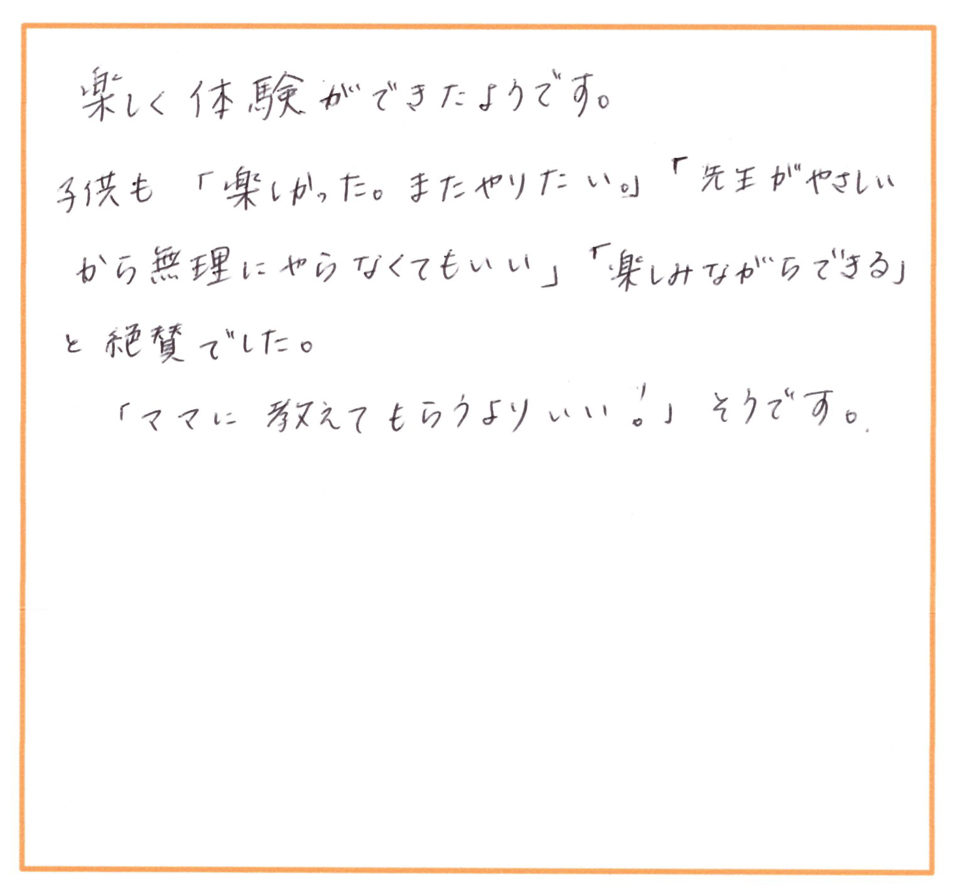 楽しく体験ができたようです。
子供も「楽しかった。またやりたい。」「先生がやさしい
から無理にやらなくてもいい」「楽しみながらできる」
と絶賛でした。
「ママに教えてもらうよりいい!」そうです。